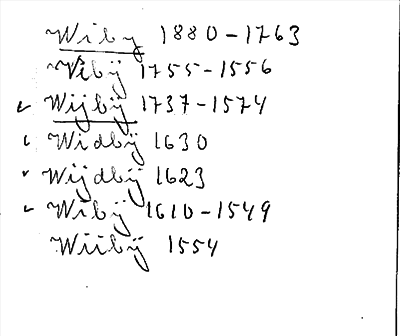 Wiby 1880-1763
Vibÿ 1755-1556
Wijbÿ 1737-1574
Widbÿ 1630
Wijdbÿ 1623
Wibÿ 1610-1549
Wiibÿ 1554